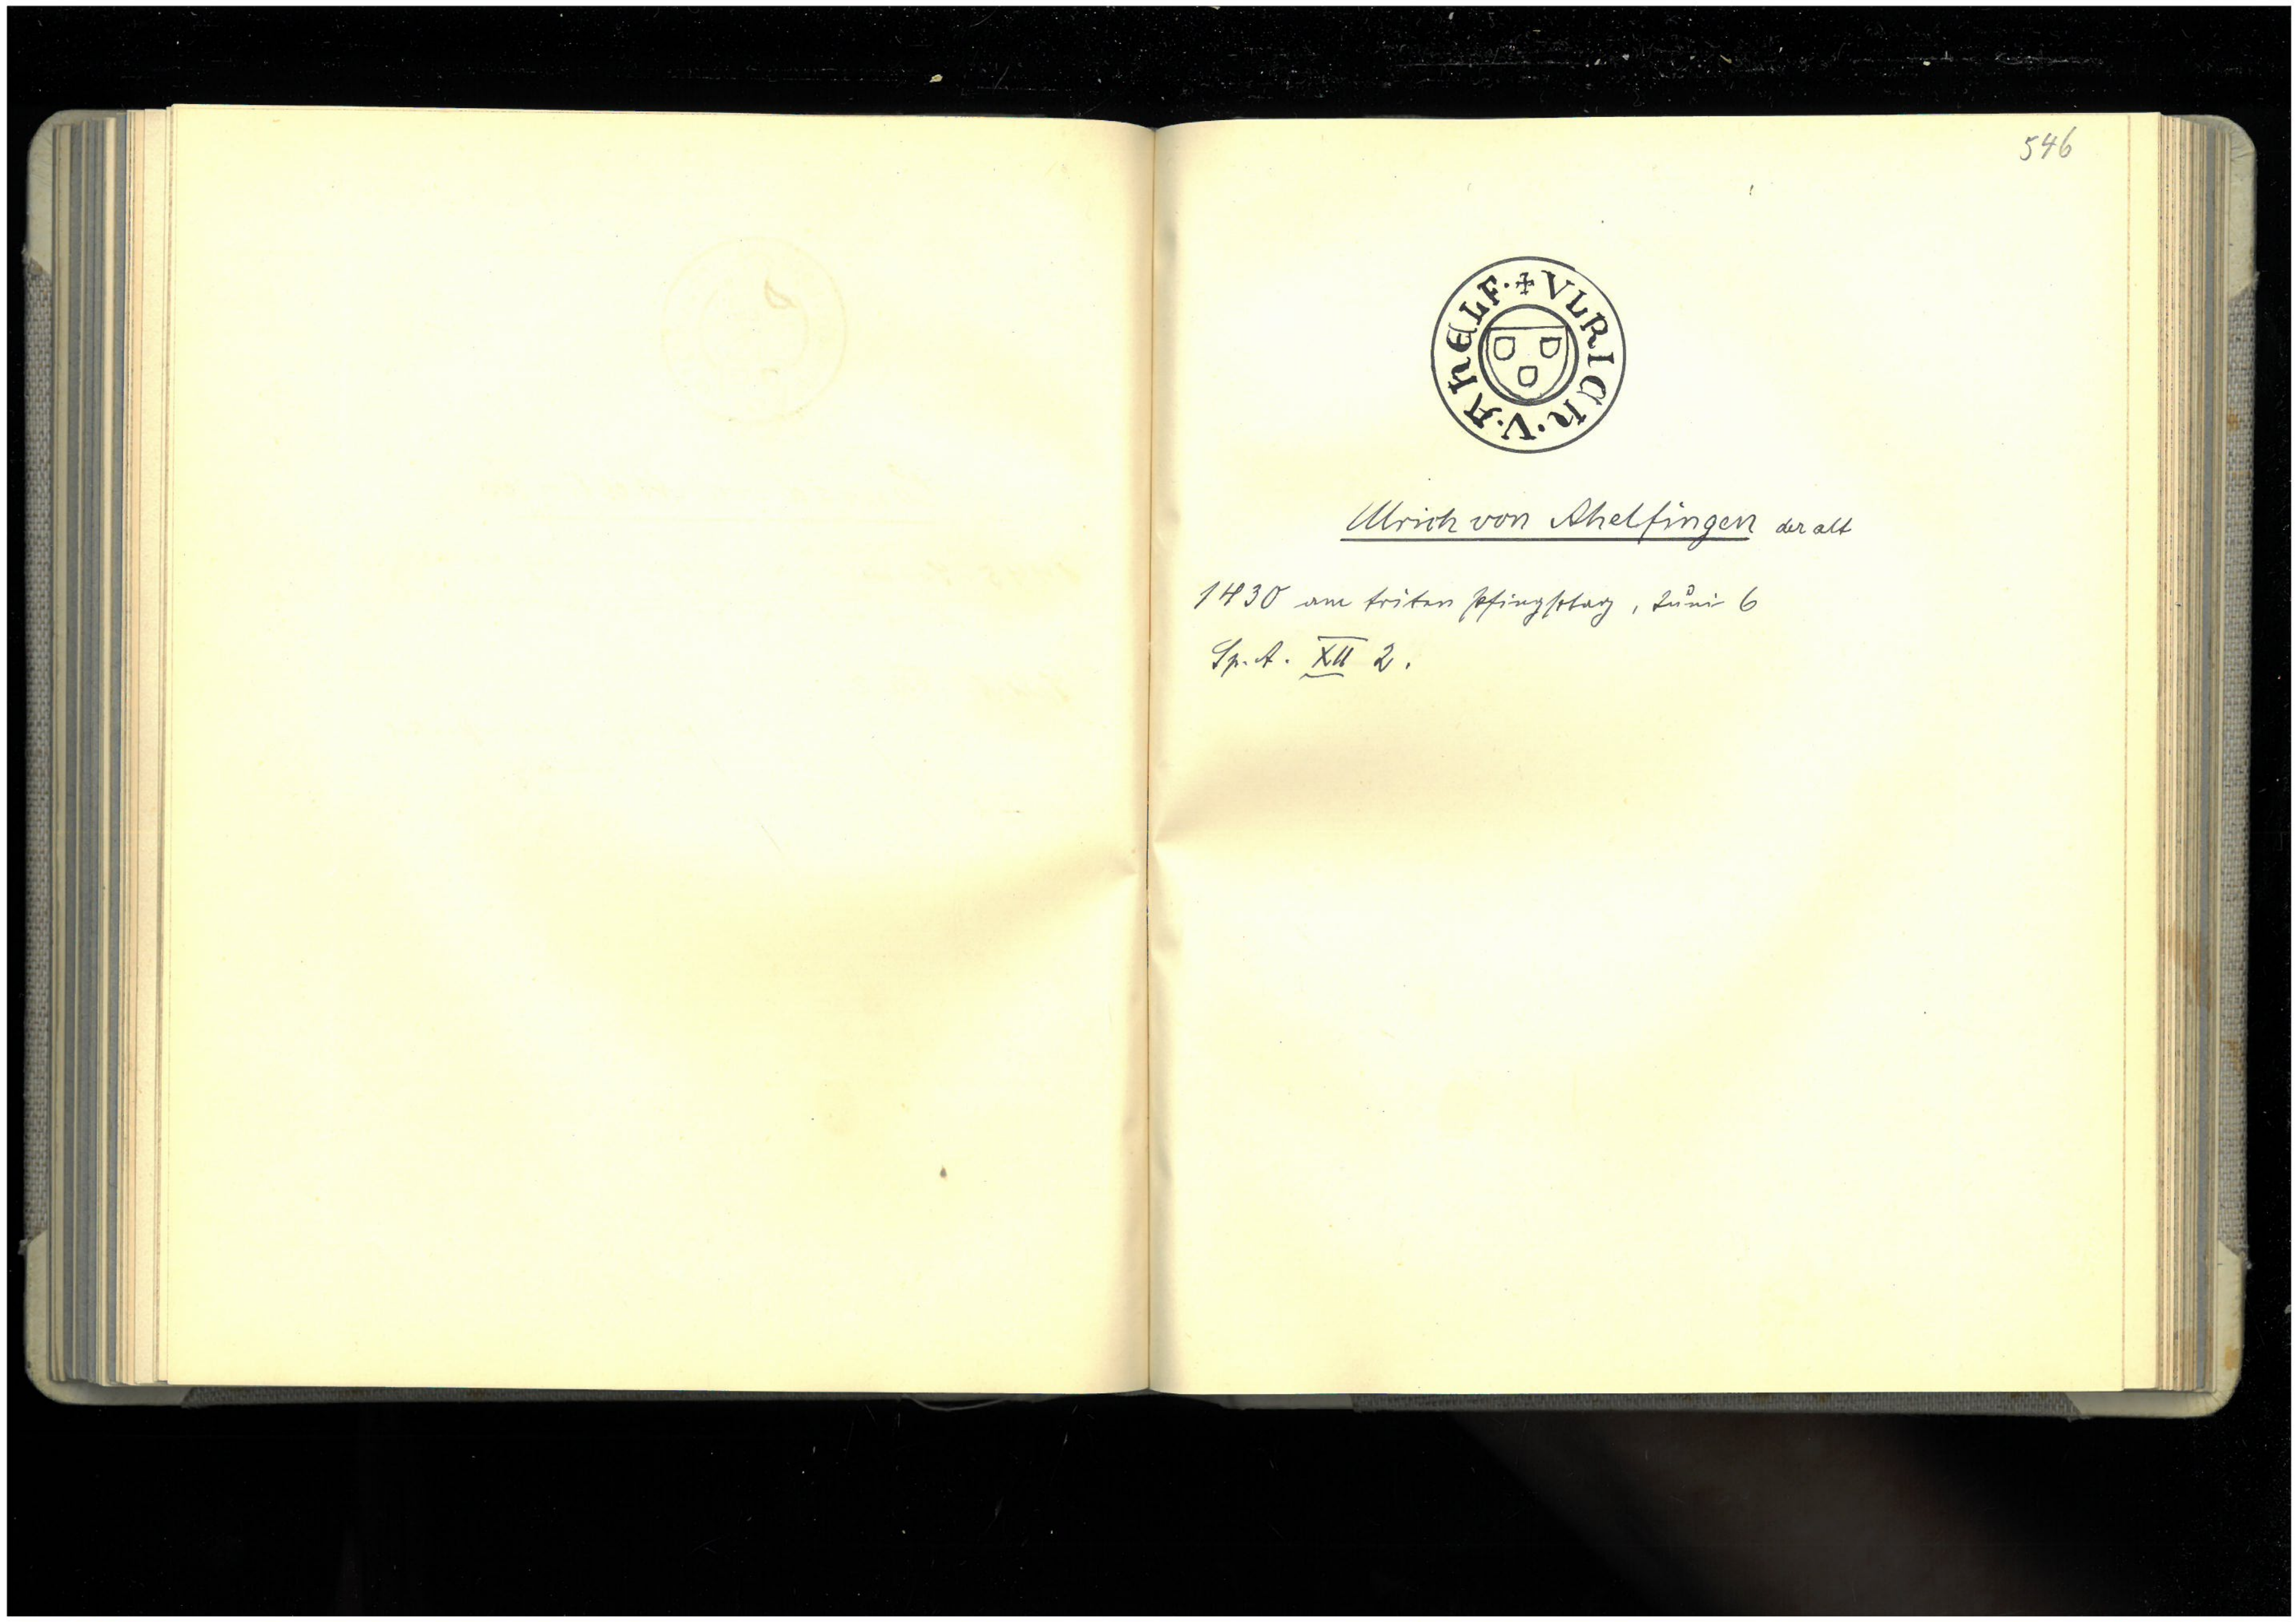 546
✠ VLRICH · V · AHELF ·
Ulrich von Ahelfingen der alt
1430 am triten pfingstag, Juni 6
Sp. A. XII 2.